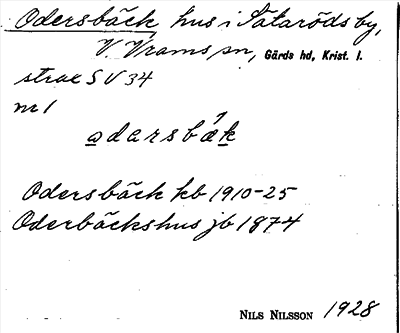 Odersbäck hus i Sätaröds by,
V. Vrams sn, Gärds hd, Krist. l.
strax SV 34
nr 1
odersbäk
Odersbäck kb 1910-25
Oderbäckshus jb 1874
NILS NILSSON 1928